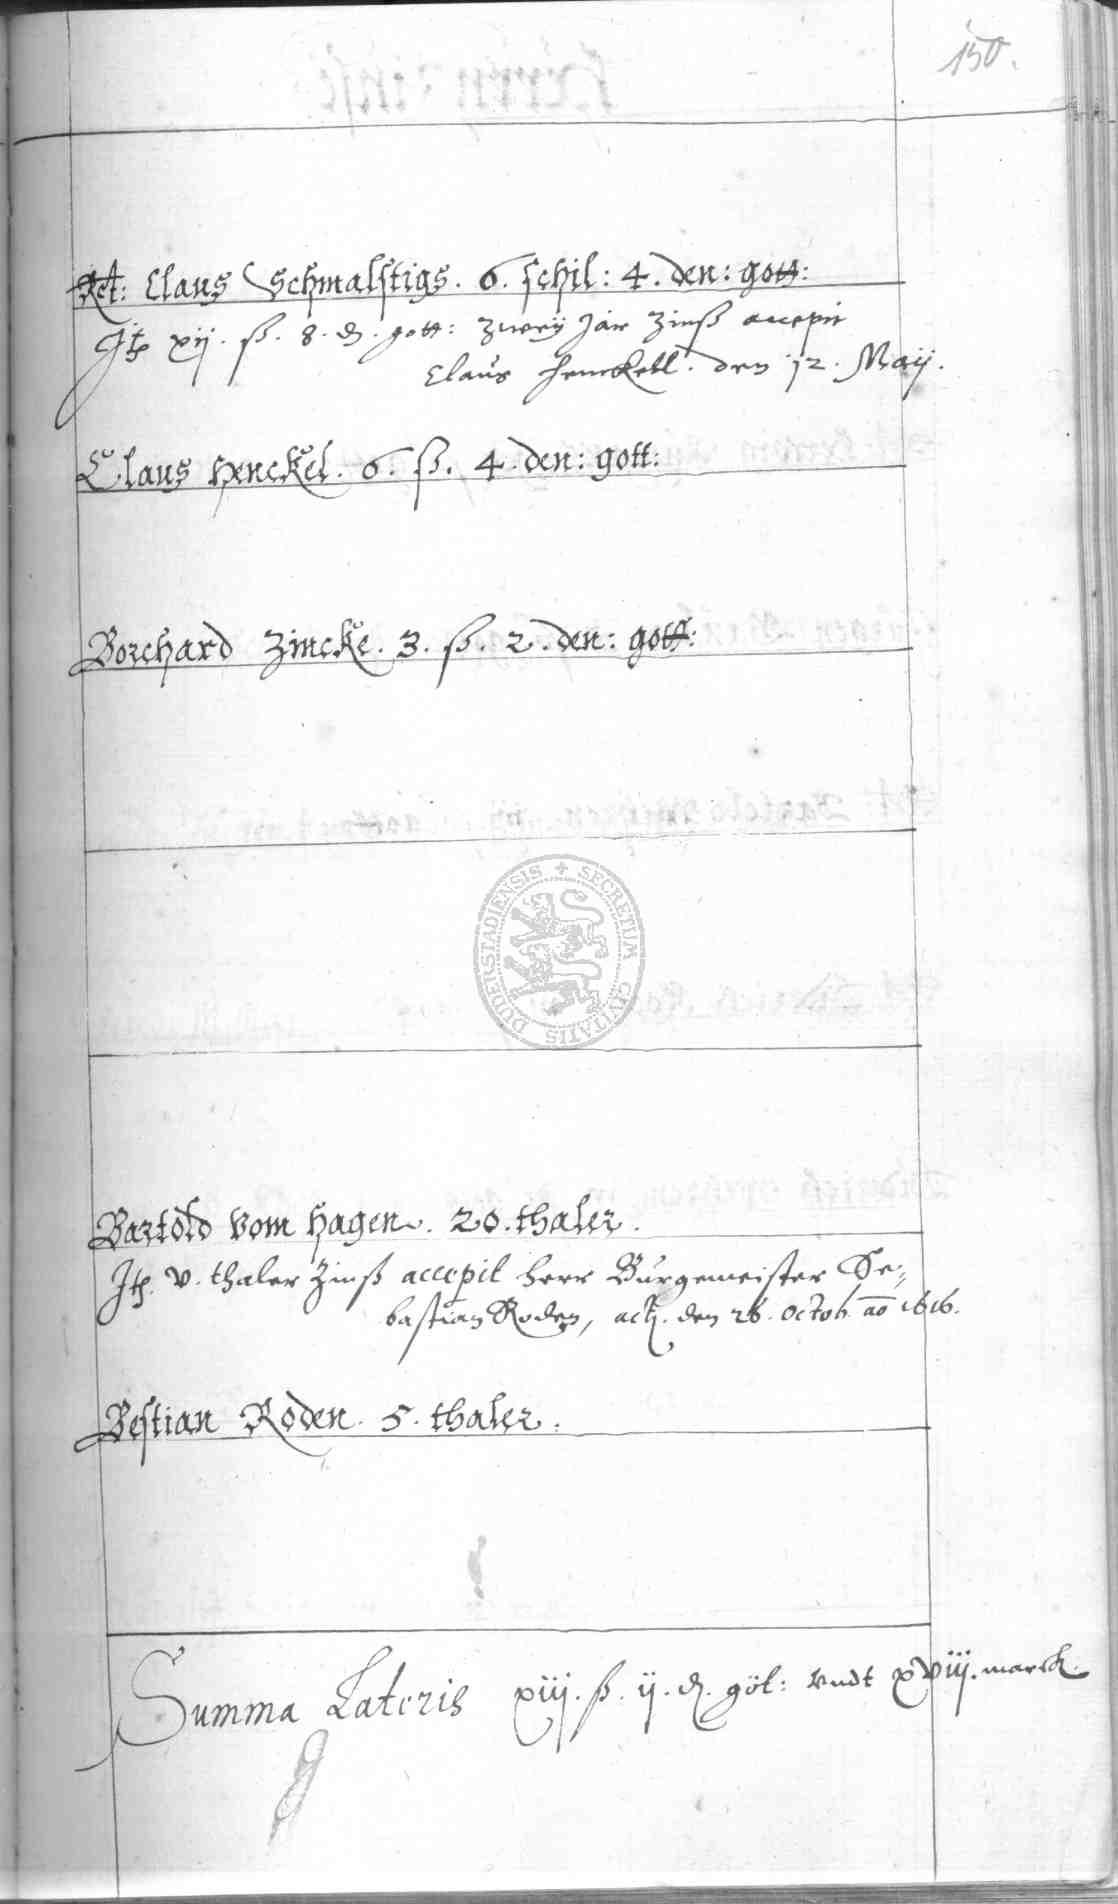 150.
Rct: Claus Schmalstigs. 6. schil: 4. den: gott:
Jtz xij. ß. 8. d. gott: zweÿ Jar Zinß accepit
Claus Henckell. den 12. Maij.
Claus Henckel. 6. ß. 4. den: gott:
Borchard Zincke. 3. ß. 2. den: gott:
SECRETUM CIVITATIS DUDERSTADIENSIS
Bartold vom Hagen. 20. thaler.
Jtz. v. thaler Zinß accepit herr Burgemeister Se-
bastian Roden, act. den 26. Octob. ao 1616.
Bestian Roden. 5. thaler.
Summa Lateris xiij. ß. ij. d. göt: vndt xviij. marck.